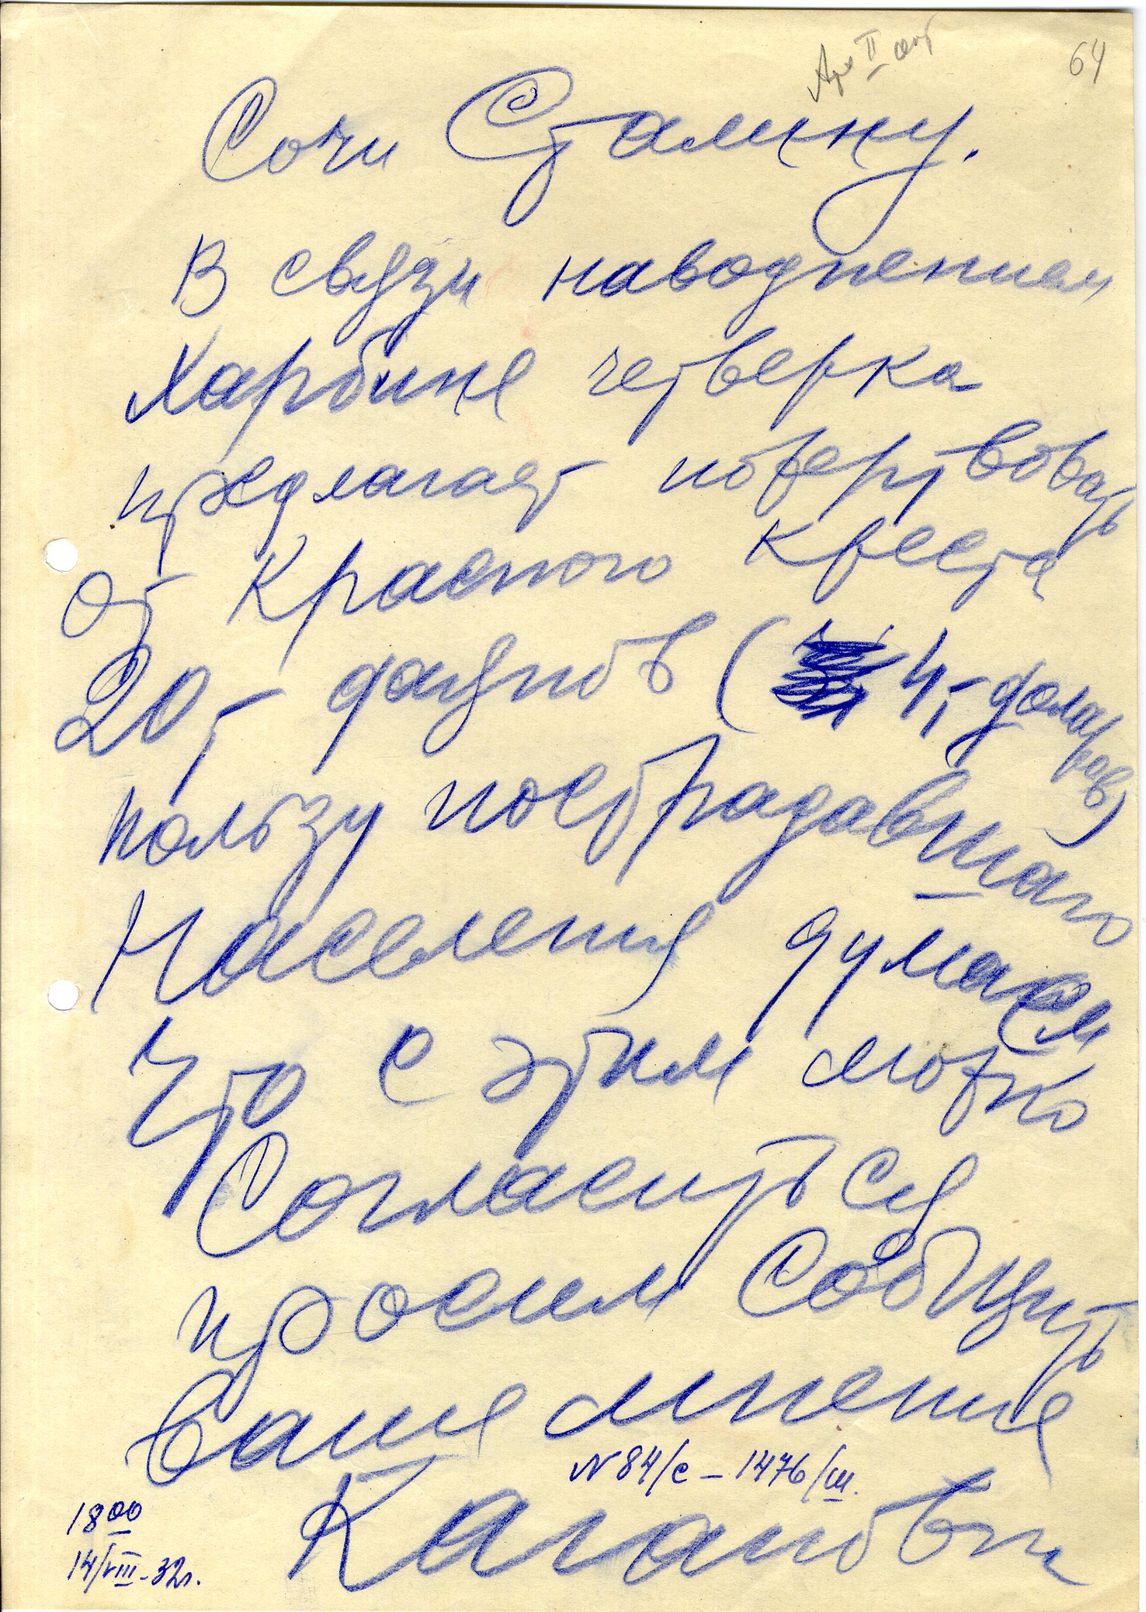 64
Сочи Сталину.
В связи наводнением
Харбине четверка
предлагает пожертвовать
от Красного креста
20 т даунов ( 4 т доларров)
пользу пострадавшаго
Населения думаем
Что с этим можно
Согласиться
просим Сообщить
Ваше мнение
N 84/с – 1476/ш.
Каганович
18 00
14/VIII–32г.